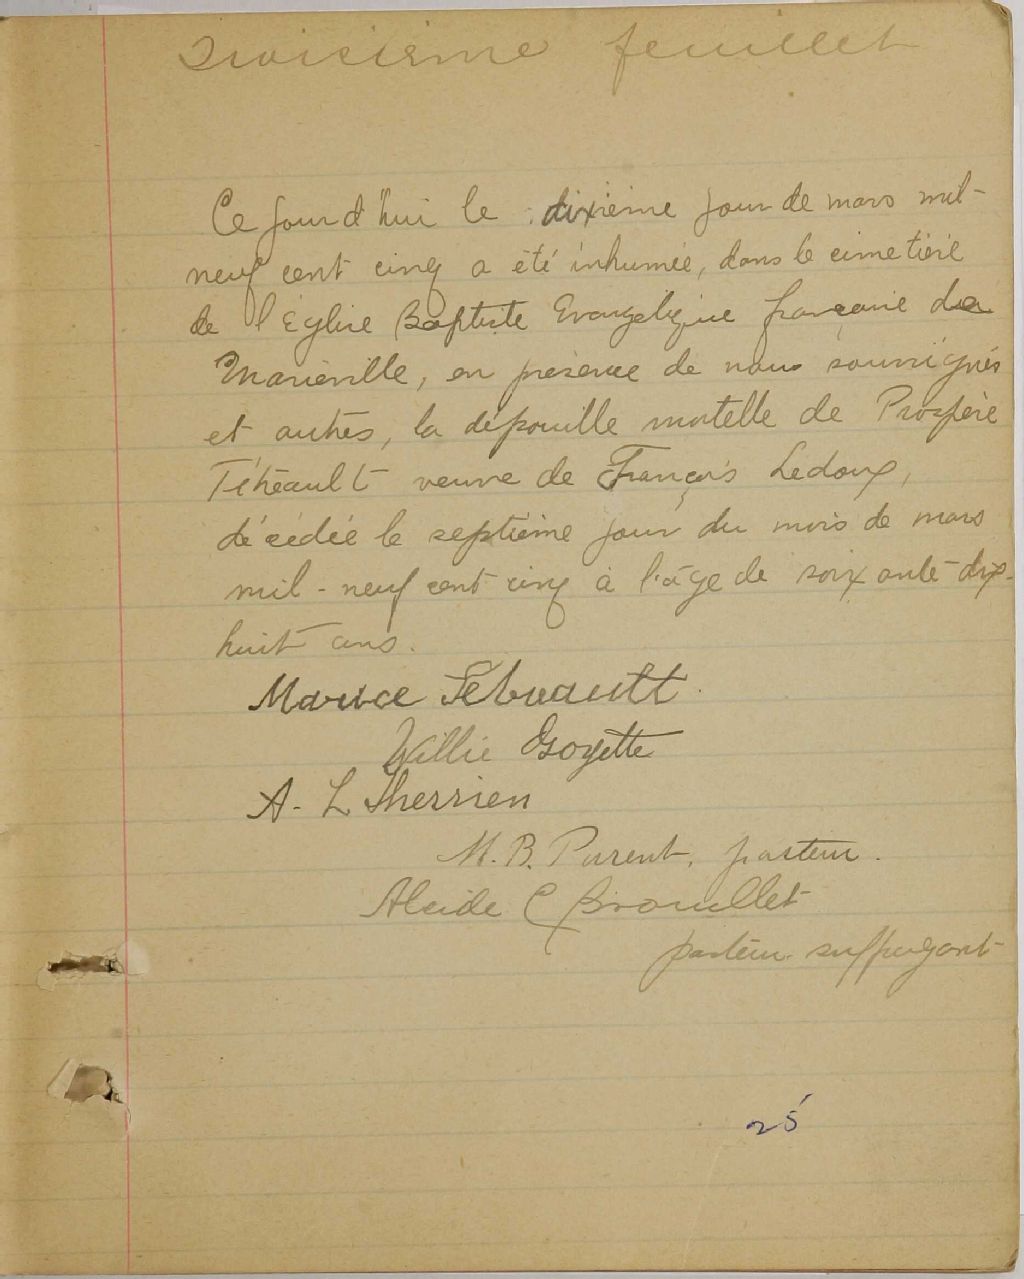 Troisième feuillet
Ce jourd'hui le dixième jour de mars mil-
neuf cent cinq a été inhumée, dans le cimetière
de l'Église Baptiste Evangélique française de
Marieville, en présence de nous soussignés
et autres, la dépouille mortelle de Prospère
Tétreault veuve de François Ledoux,
décédée le septième jour du mois de mars
mil-neuf cent cinq à l'âge de soixante-dix-
huit ans.
Tetreault
Willie Goyette
A. L Therrien
M. B. Parent, pasteur.
Alcide C Brouillet
pasteur suffragant
25